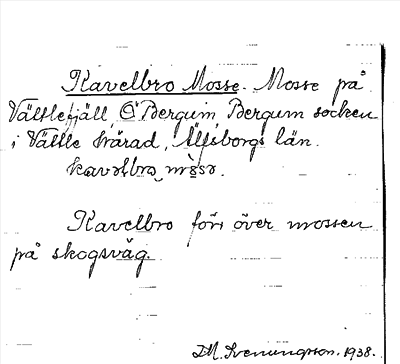 Kavelbro Mosse. Mosse på
Vättlefjäll Ö Bergum Bergum socken
i Vättle härad, Älfsborgs län.
Kavelbro förr över mossen
på skogsväg.
Svenungsson. 1938.